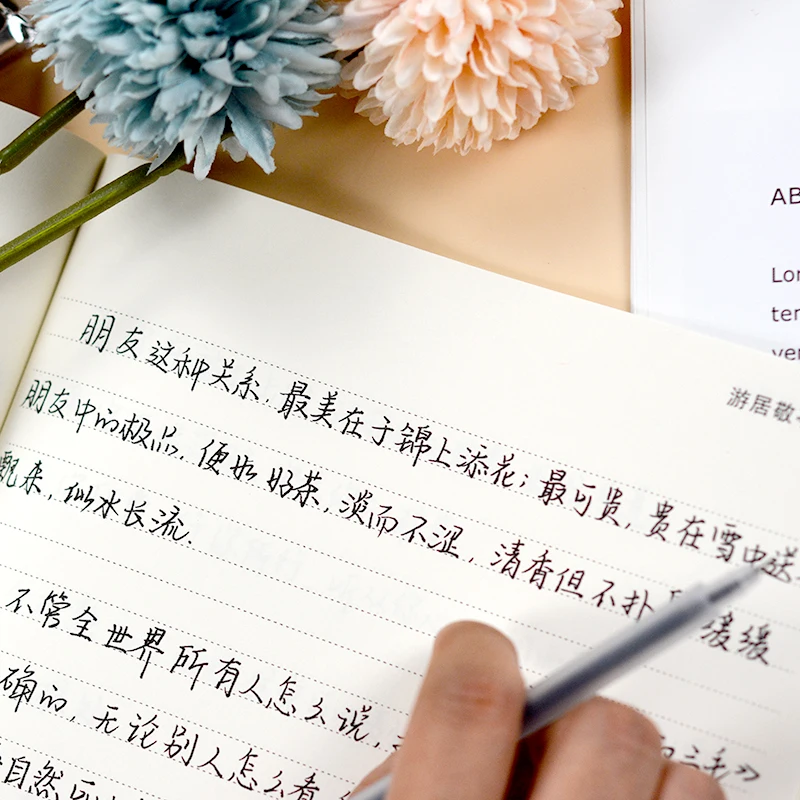 AB
Lor
ter
ver
游居敬
朋友这种关系,最美在于锦上添花;最可贵,贵在雪中送
朋友中的极品,便如好茶,淡而不涩,清香但不扑 缓缓
飘来,似水长流.
不管全世界所有人怎么说,
确的,无论别人怎么看
自然
三毛》